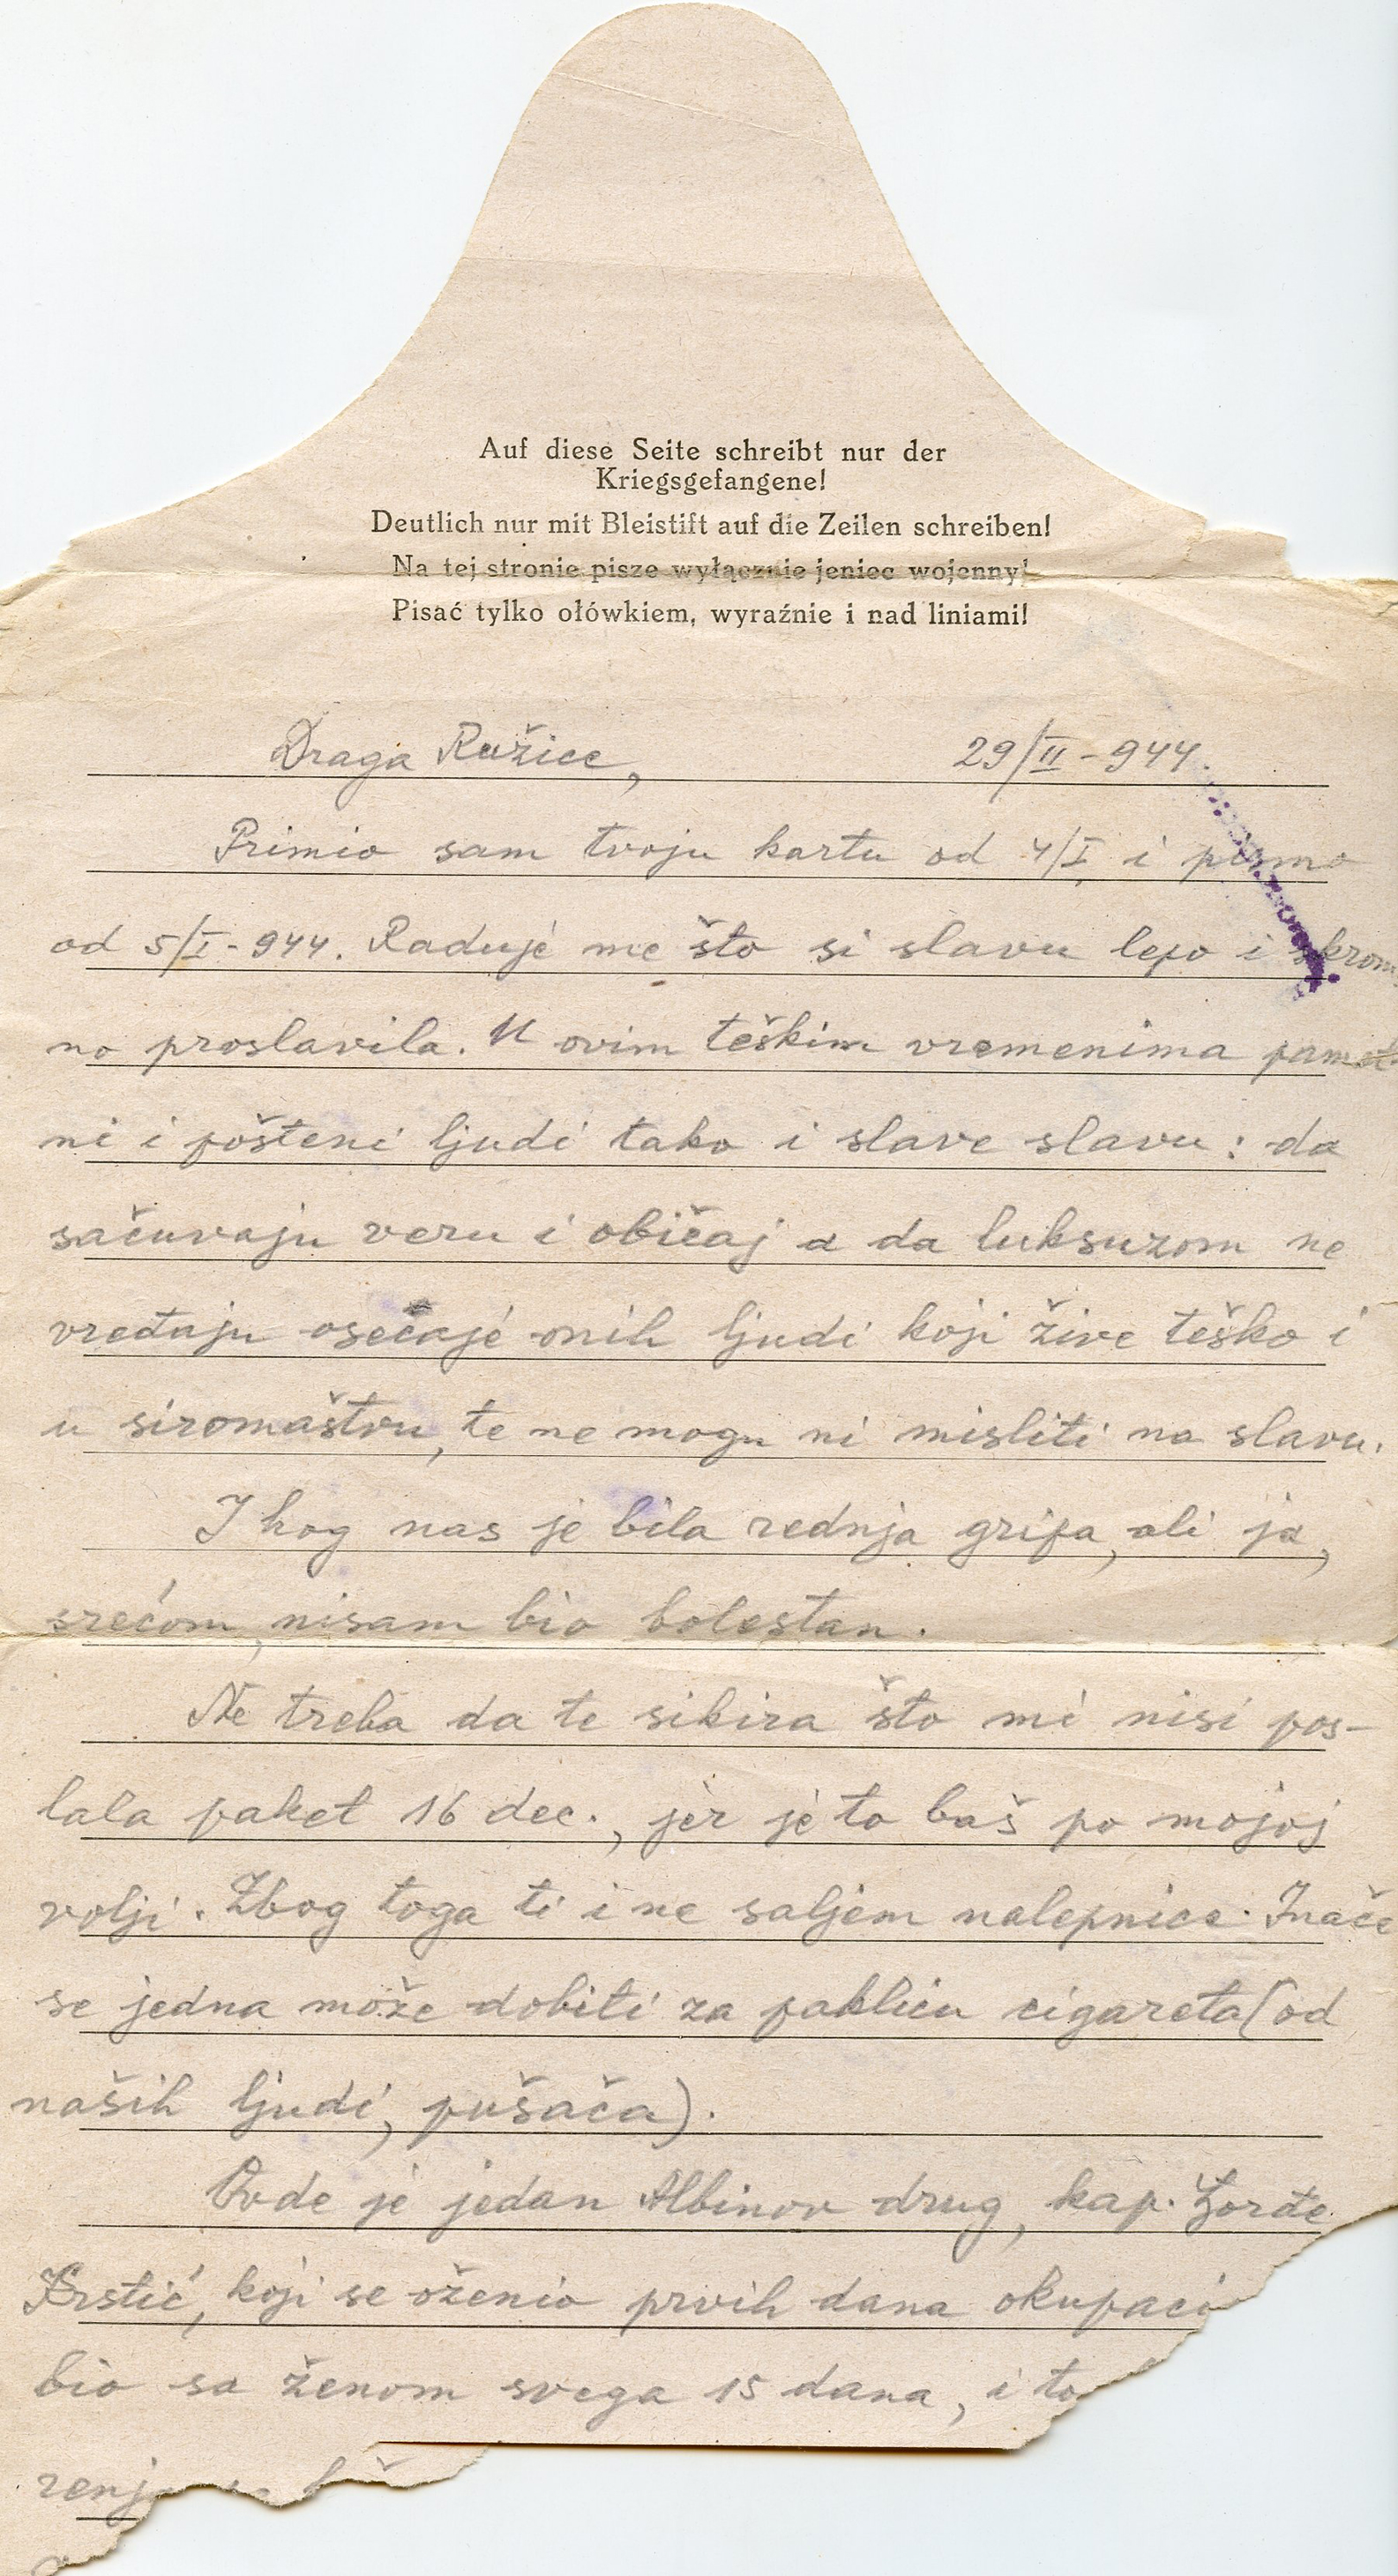 Auf diese Seite schreibt nur der
Kriegsgefangene!
Deutlich nur mit Bleistift auf die Zeilen schreiben!
Na tej stronie pisze wyłącznie jeniec wojenny!
Pisać tylko ołówkiem, wyraźnie i nad liniami!
Draga Ružice, 29/II-944.
Primio sam tvoju kartu od 4/I, i pismo
od 5/I-944. Raduje me što si slavu lepo i skrom
no proslavila. U ovim teškim vremenima pamet
ni i pošteni ljudi tako i slave slavu: da
sačuvaju veru i običaj a da luksuzom ne
vređaju osećaje onih ljudi koji žive teško i
u siromaštvu, te ne mogu ni misliti na slavu.
I kog nas je bila rednja gripa, ali ja,
srećom, nisam bio bolestan.
Ne treba da te sikira što mi nisi pos-
lala paket 16 dec., jer je to baš po mojoj
volji. Zbog toga ti i ne saljem nalepnice. Inače
se jedna može dobiti za paklicu cigareta (od
naših ljudi, pušača).
Ovde je jedan Albinov drug, kap. Đorđe
Krstić, koji se oženio prvih dana okupaci
bio sa ženom svega 15 dana, i to
renj